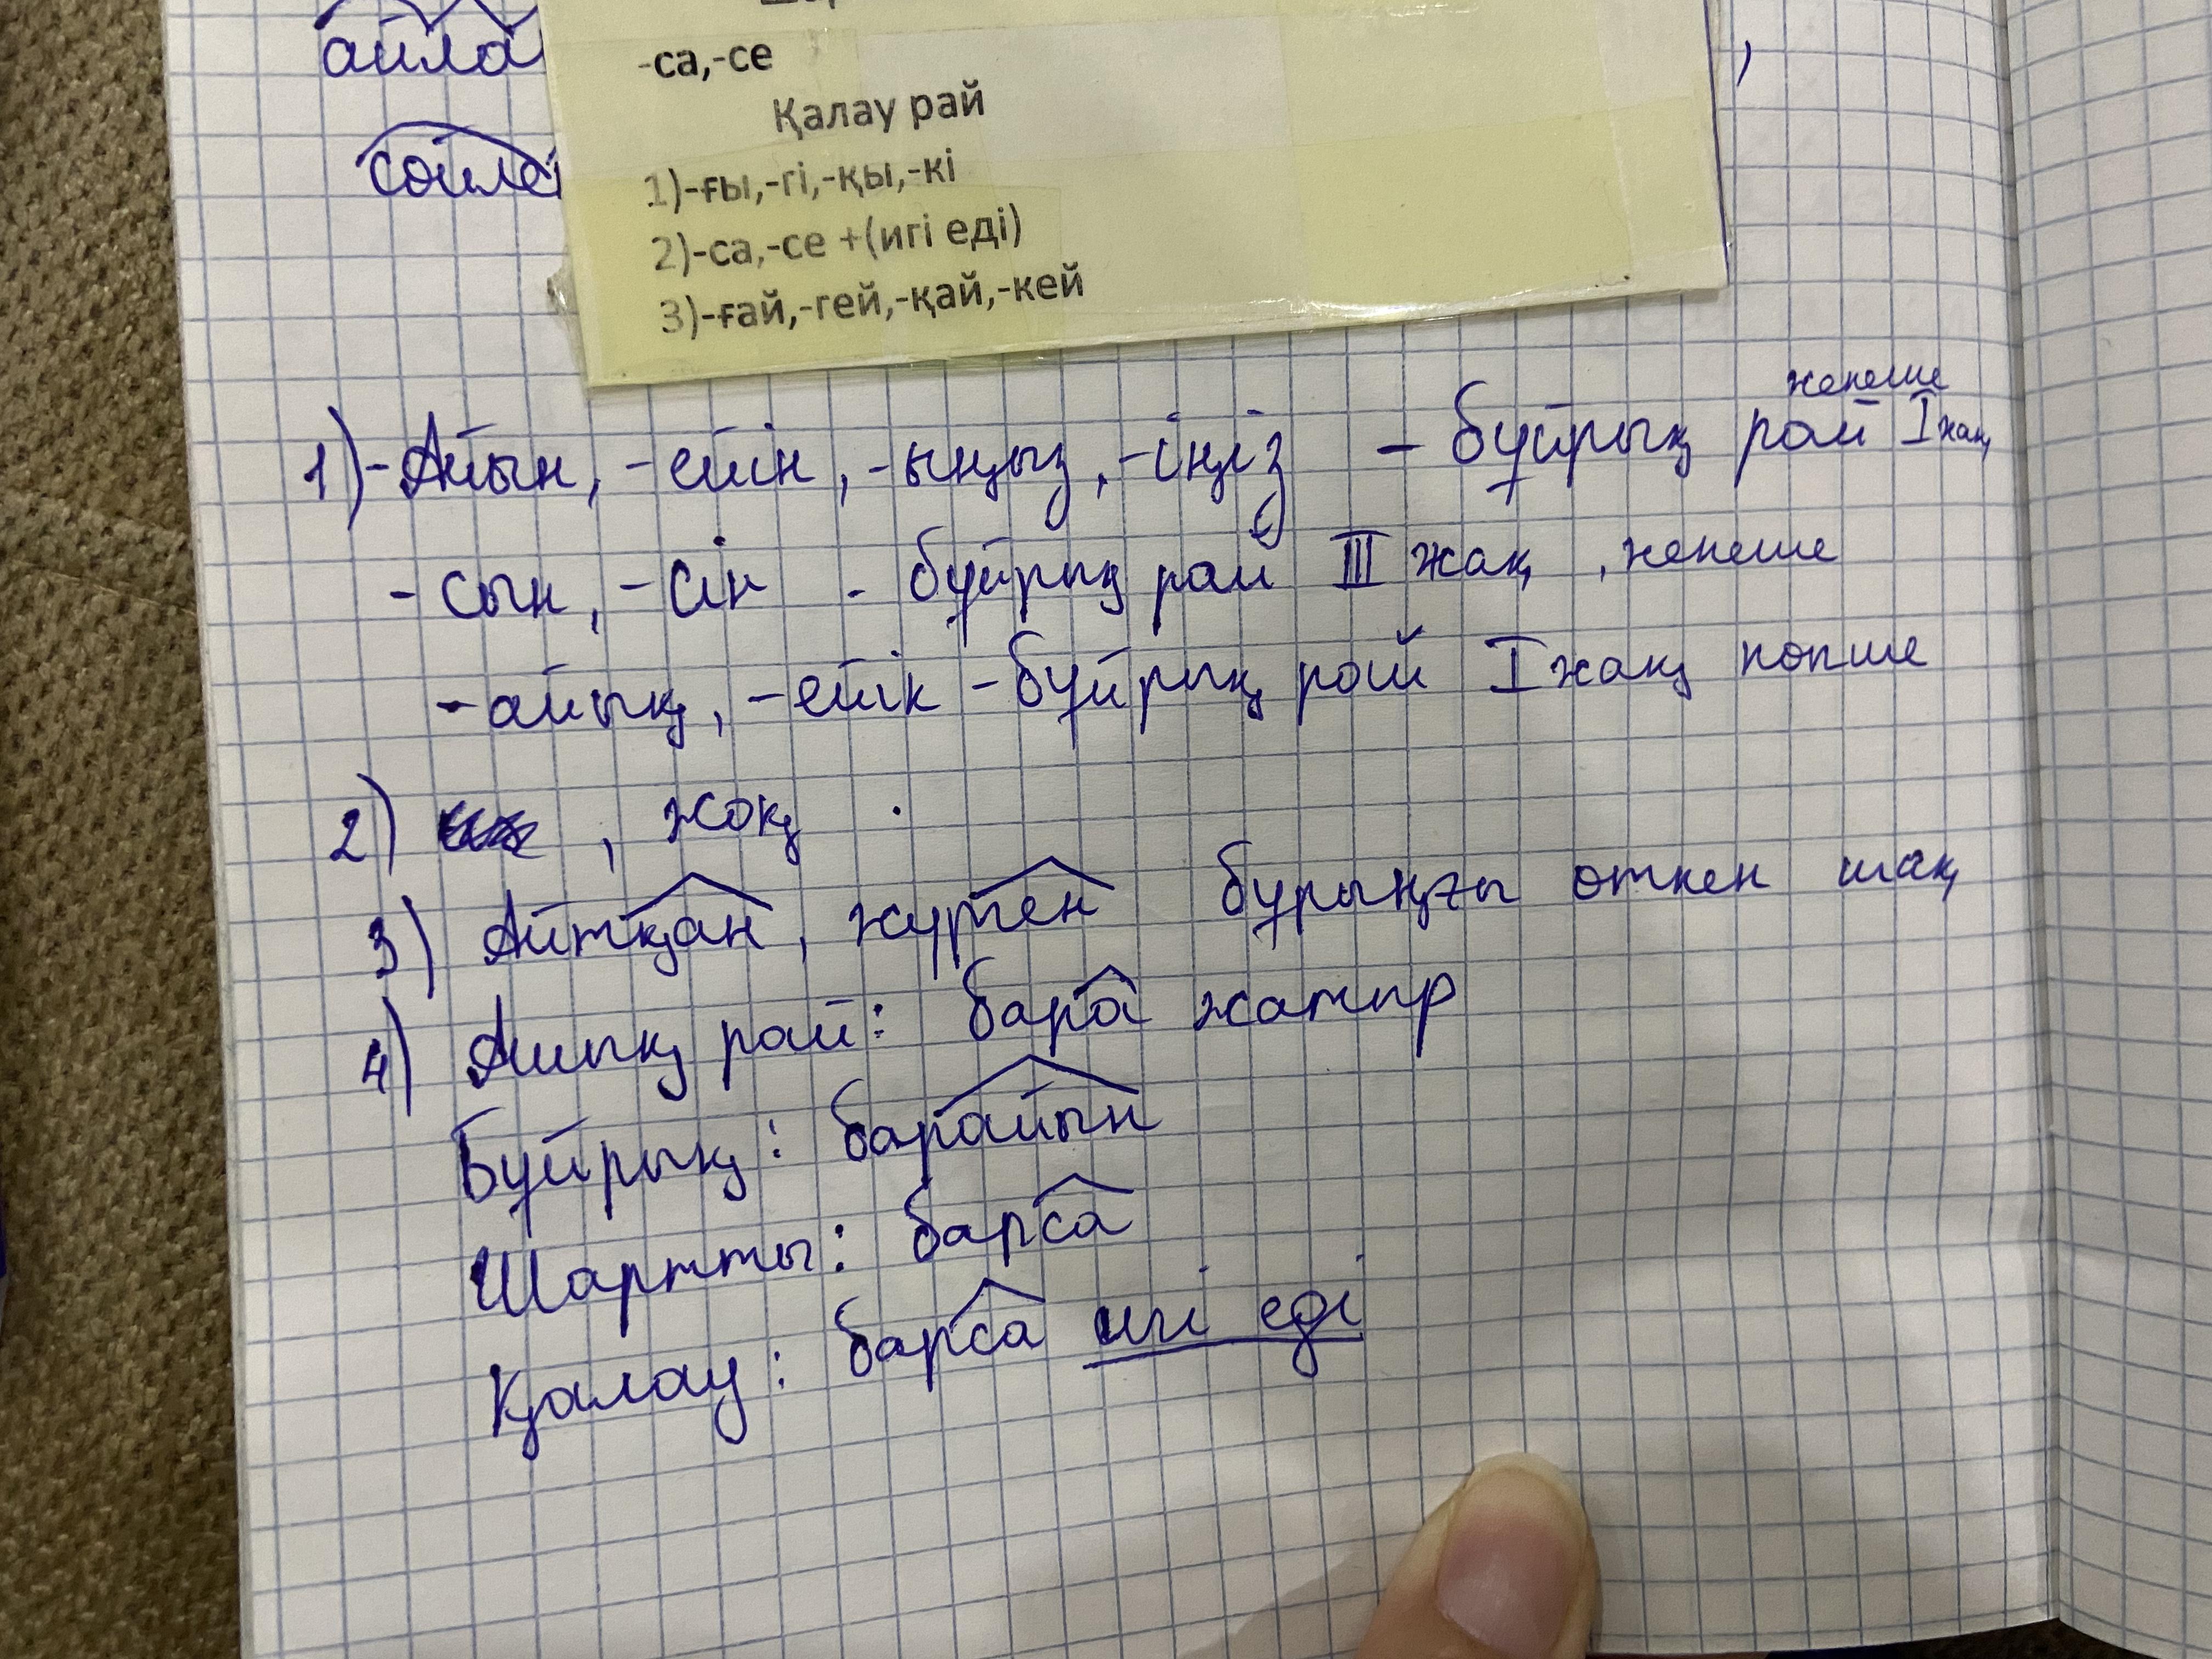 айла
-са,-се
Қалау рай
сөйле
1)-ғы,-гі,-қы,-кі
2)-са,-се +(игі еді)
3)-ғай,-гей,-қай,-кей
1) -Айын, -ейін, -ыңыз, -іңіз - бұйрық рай жекеше I жақ
,
-сын, -сін - бұйрық рай III жақ, жекеше
-айық, -ейік - бұйрық рай I жақ көпше
2) , жоқ .
3) Айтқан, жүрген бұрыңғы өткен шақ
4) Ашық рай: бара жатыр
Бұйрық: барайын
Шартты: барса
Қалау: барса игі еді